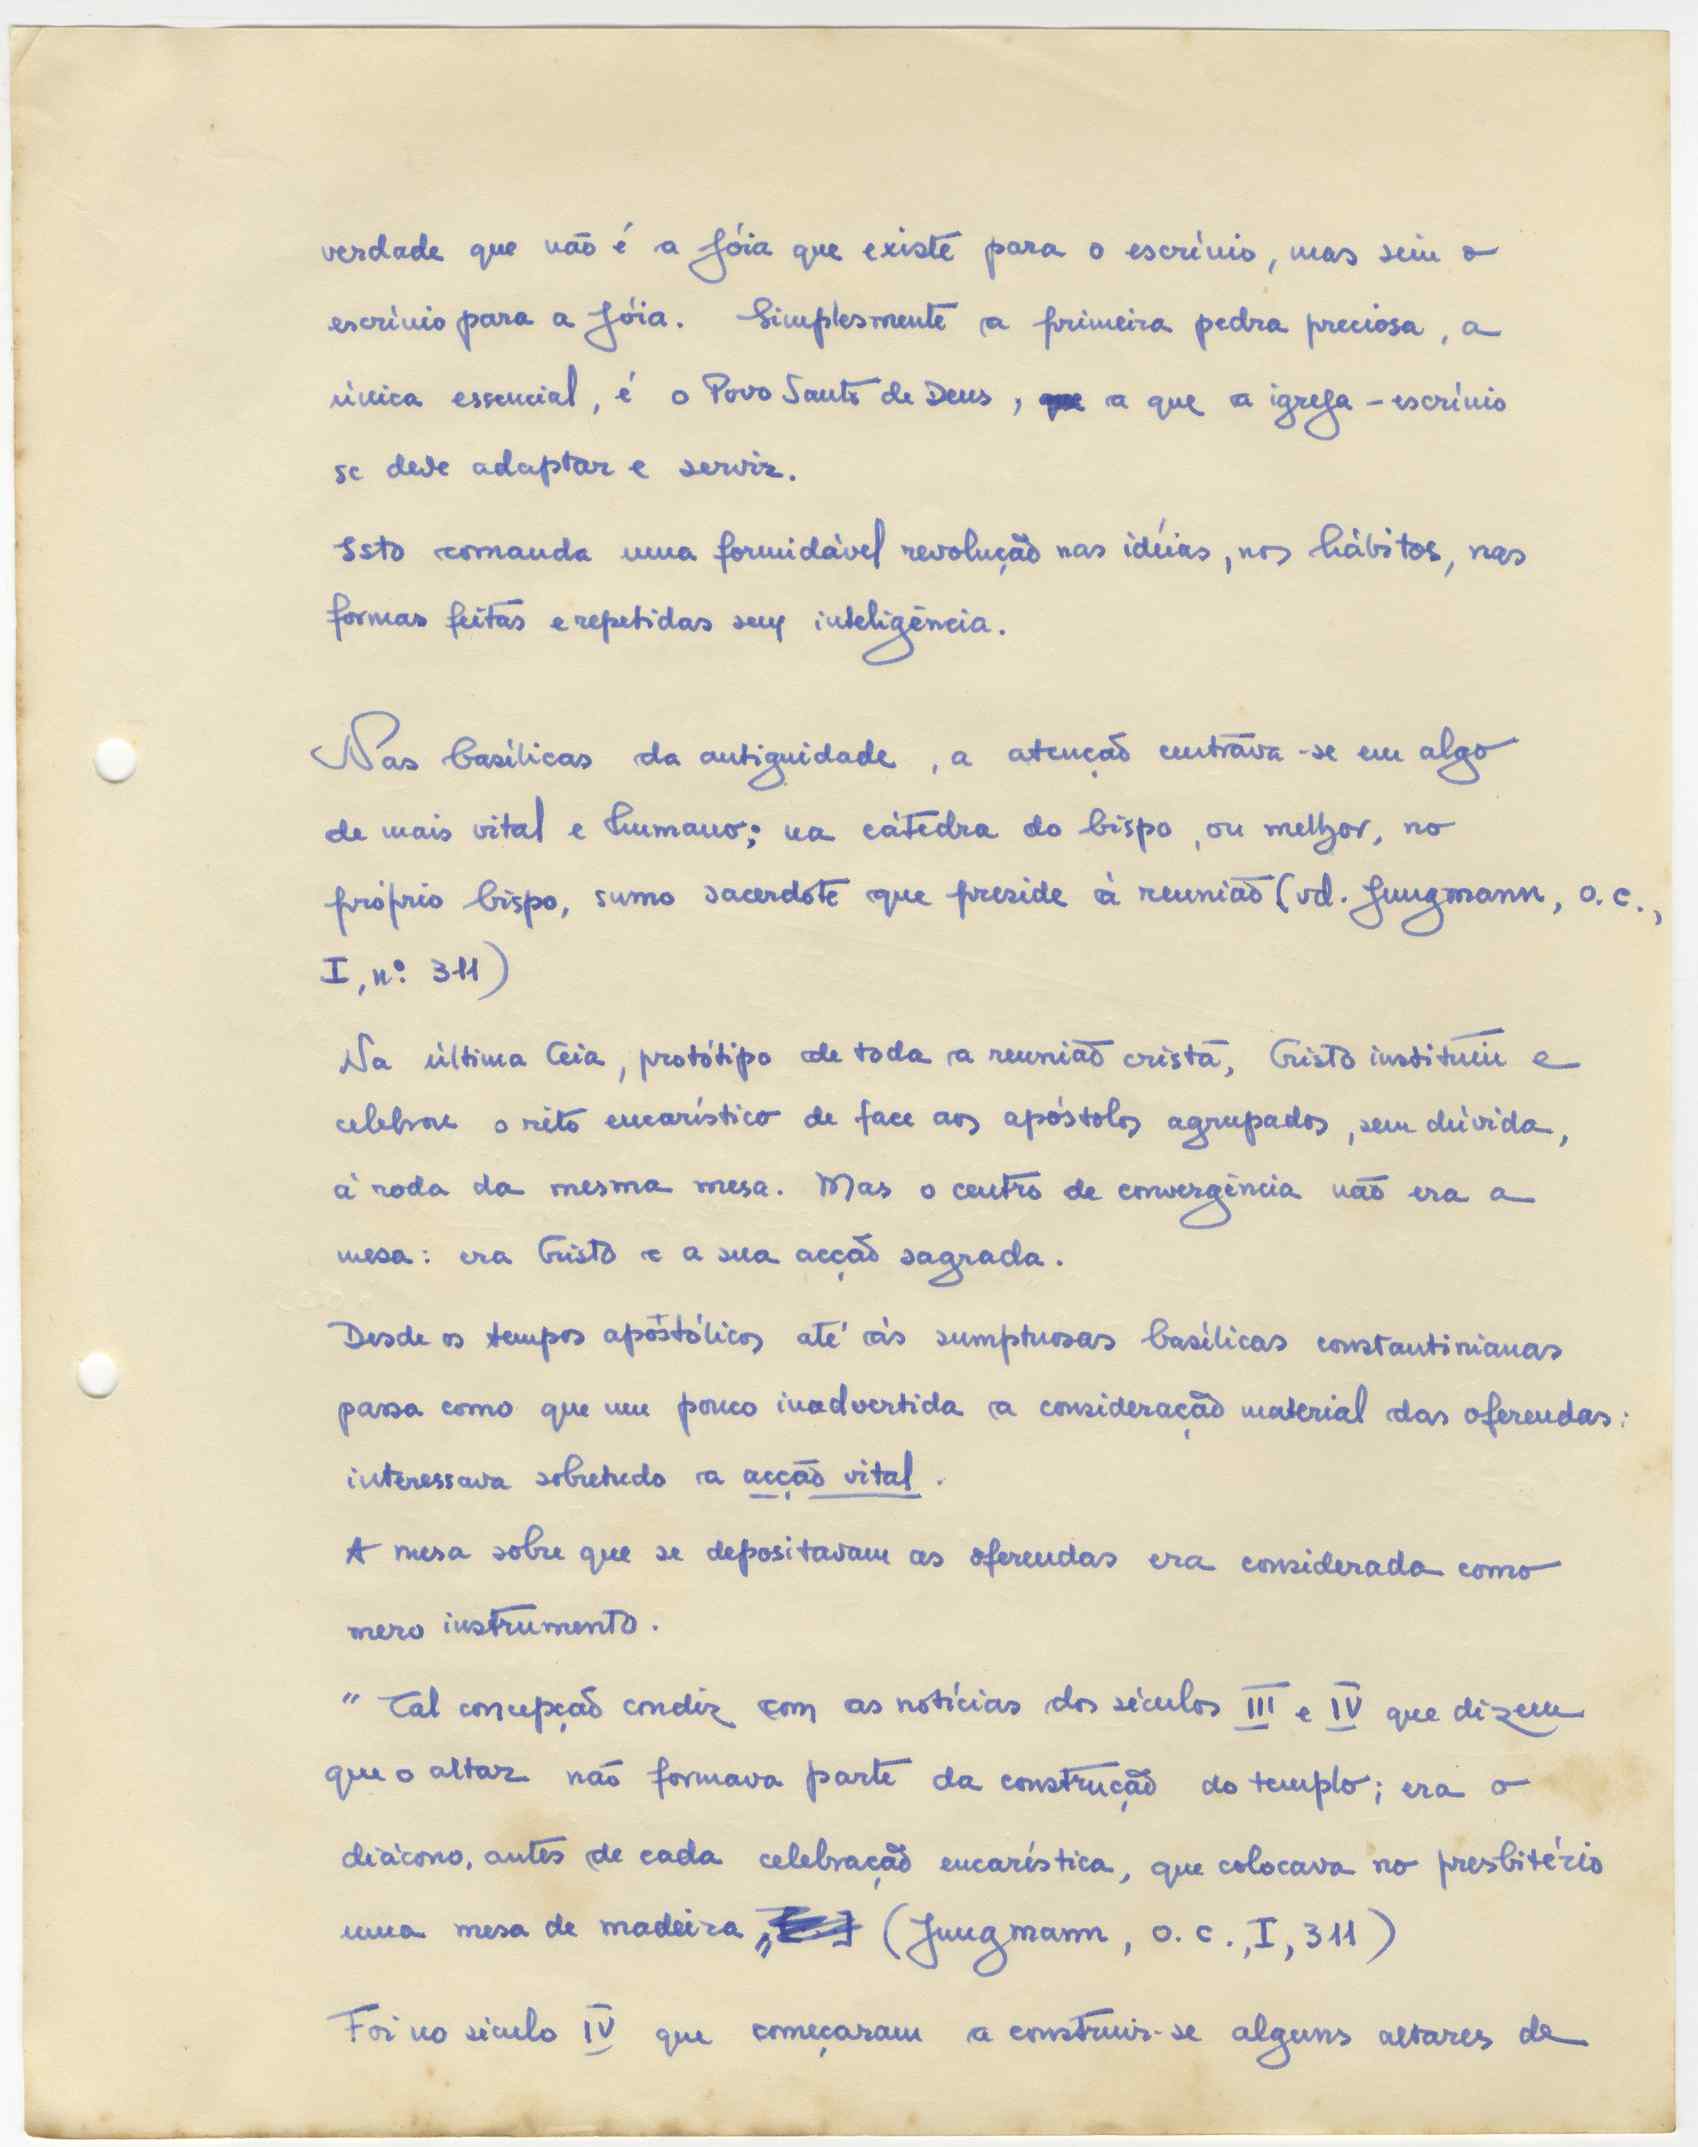 verdade que não é a jóia que existe para o escrínio, mas sim o
escrínio para a jóia. Simplesmente a primeira pedra preciosa, a
única essencial, é o Povo Santo de Deus, a que a igreja-escrínio
se deve adaptar e servir.
Isto comanda uma formidável revolução nas idéias, nos hábitos, nas
formas feitas e repetidas sem inteligência.
Nas basílicas da antiguidade, a atenção centrava-se em algo
de mais vital e humano; na cátedra do bispo, ou melhor, no
próprio bispo, sumo sacerdote que preside à reunião (vd. Jungmann, o. c.,
I, nº 311)
Na última Ceia, protótipo de toda a reunião cristã, Cristo instituíu e
celebrou o rito eucarístico de face aos apóstolos agrupados, sem dúvida,
à roda da mesma mesa. Mas o centro de convergência não era a
mesa: era Cristo e a sua acção sagrada.
Desde os tempos apóstólicos até às sumptuosas basílicas constantinianas
passa como que um pouco inadvertida a consideração material das oferendas:
interessava sobretudo a acção vital.
A mesa sobre que se depositavam as oferendas era considerada como
mero instrumento.
"Tal concepção condiz com as notícias dos séculos III e IV que dizem
que o altar não formava parte da construção do templo; era o
diácono, antes de cada celebração eucarística, que colocava no presbitério
uma mesa de madeira" (Jungmann, o. c., I, 311)
Foi no século IV que começaram a construir-se alguns altares de